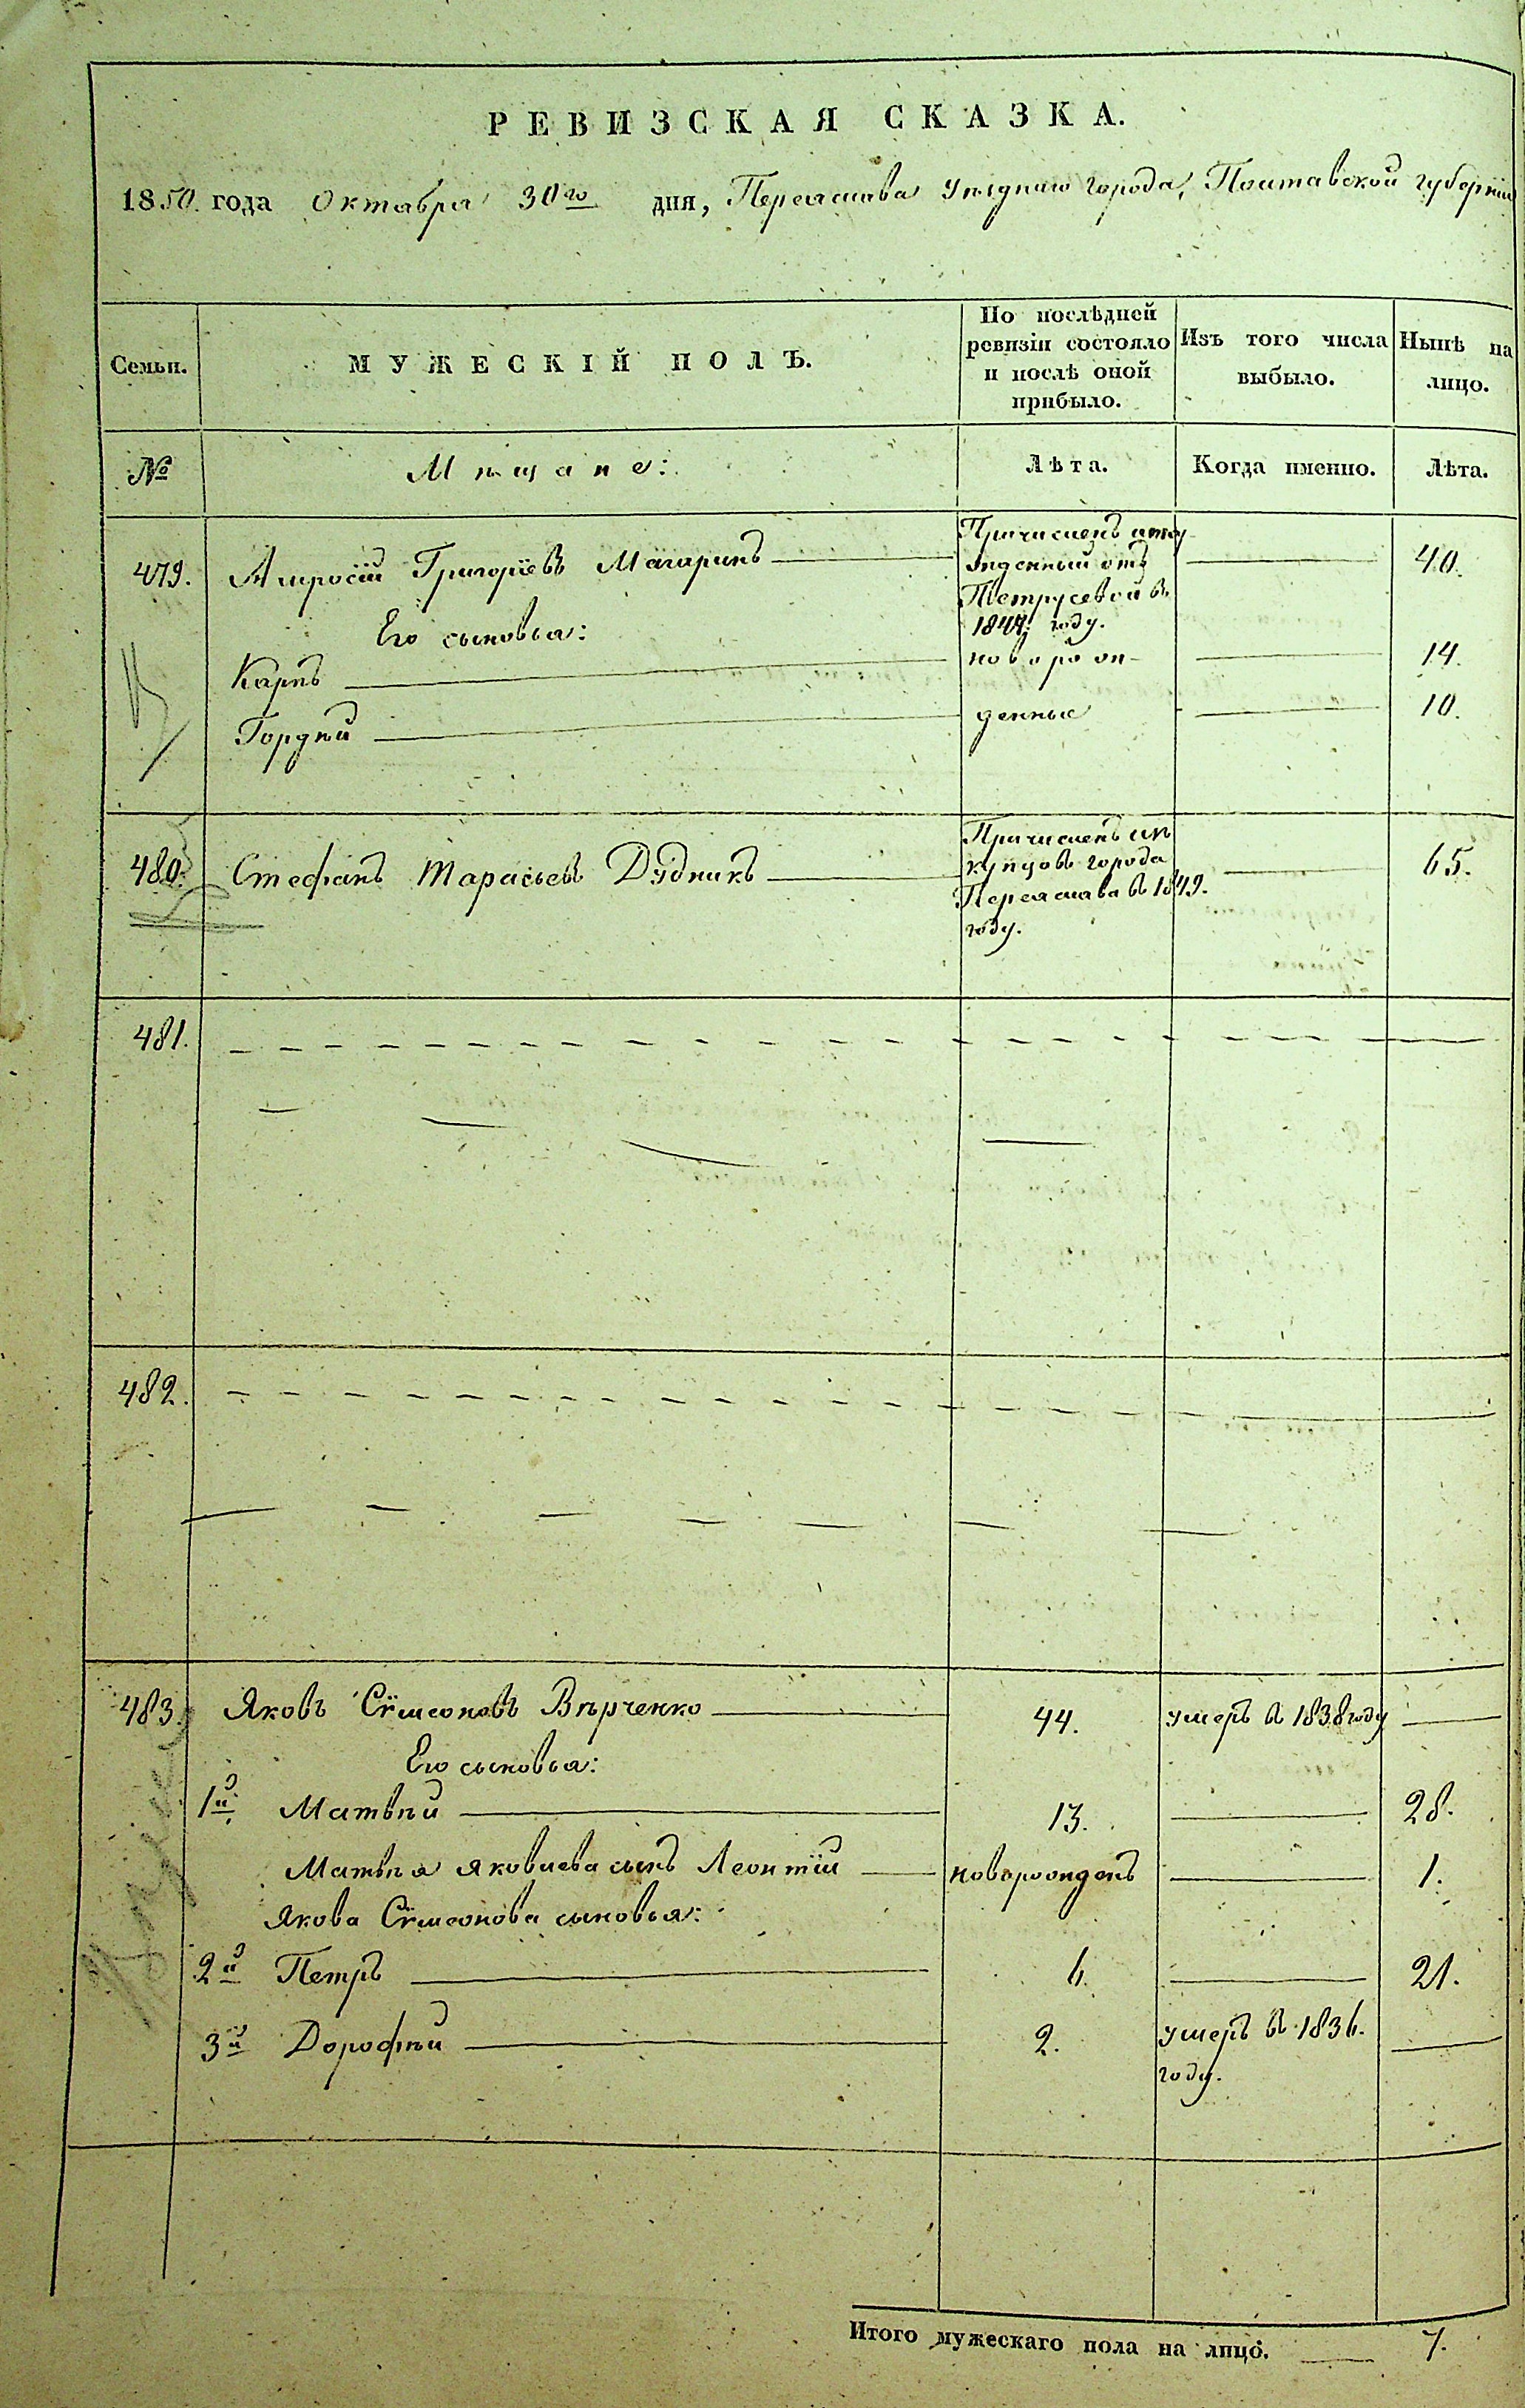 РЕВИЗСКАЯ СКАЗКА.
1850. года Октября 30го дня, Переяслова Уѣзднаго города, Полтавской губерніи
Семьи.
МУЖЕСКІЙ ПОЛЪ.
По послѣдней ревизіи состояло и послѣ оной прибыло.
Изъ того числа выбыло.
Нынѣ на лицо.
№ Мѣщане: Лѣта. Когда именно. Лѣта.
479. Амросій Григоріевъ Магаринъ 40.
Причисленъ
жденный отъ
Петрусевой въ
1847. году.
Его сыновья:
Карпъ новорож- 14.
Гордѣй денные 10.
480. Стефанъ Тарасьевъ Дудникъ 65.
Причисленъ изъ
купцовъ города
Переяслава въ 1849.
году.
481.
482.
483. Яковъ Сѵмеоновъ Вѣрченко 44. умеръ въ 1838 году
Его сыновья:
1й Матвѣй 13. 28.
Матвѣя Яковлева сынъ Леонтій новорожденъ 1.
Якова Сѵмеонова сыновья:
2й Петръ 6. 21.
3й Дорофѣй 2. умеръ въ 1836.
году.
Итого мужескаго пола на лицо. 7.